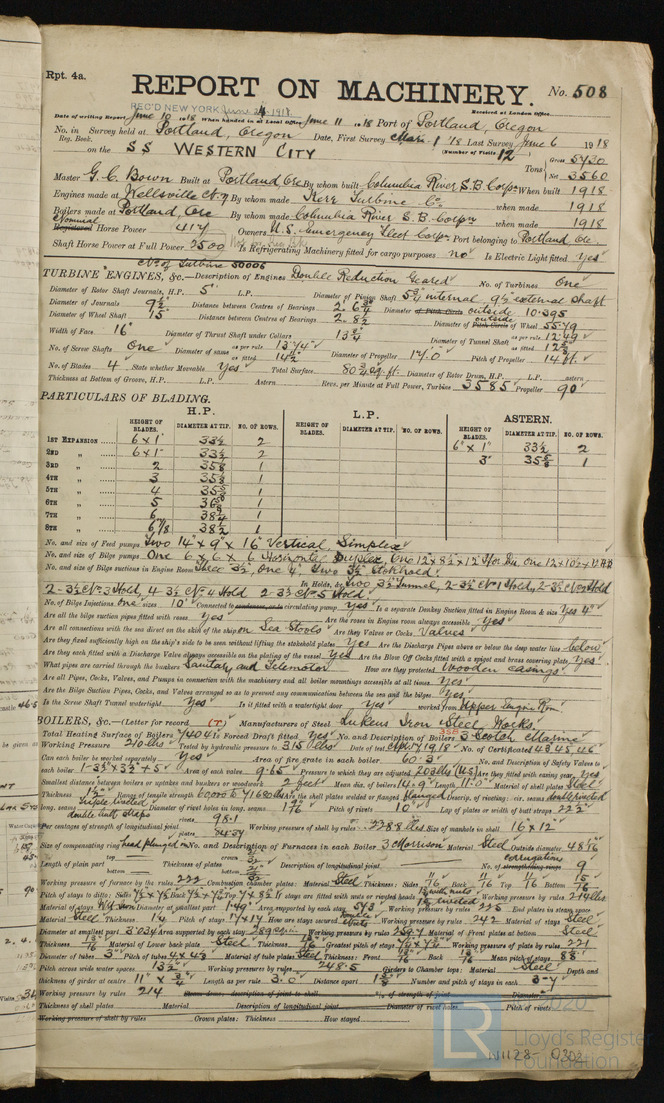 Rpt. 4a.
REPORT ON MACHINERY.
No. 508
REC'D NEW YORK June 24 1918
Received at London Office
Date of writing Report June 10 1918 When handed in at Local Office June 11 1918 Port of Portland, Oregon
No. in Survey held at Portland, Oregon Date, First Survey Mar. 1 '18 Last Survey June 6 1918
Reg. Book.
(Number of Visits 12)
on the SS WESTERN CITY
Tons Gross 5730
Net 3560
Master G. C. Bown Built at Portland Ore By whom built Columbia River S.B. Corpn When built 1918
Engines made at Wellsville N.Y By whom made Kerr Turbine Co. when made 1918
Boilers made at Portland, Ore By whom made Columbia River S.B. Corpn when made 1918
Nominal
Registered Horse Power 417 Owners U.S. Emergency Fleet Corpn. Port belonging to Portland Ore.
Shaft Horse Power at Full Power 2500 Is Refrigerating Machinery fitted for cargo purposes no Is Electric Light fitted yes
No. of Turbine 50006
TURBINE ENGINES, &c.—Description of Engines Double Reduction Geared No. of Turbines One
Diameter of Rotor Shaft Journals, H.P. 5" L.P. Diameter of Pinion Shaft 5 3/4 internal, 9 1/2 external shaft
Diameter of Journals 9 1/2" Distance between Centres of Bearings 2' 6 3/4" Diameter of Pitch Circle outside 10.595
Diameter of Wheel Shaft 15" Distance between Centres of Bearings 2' 8 1/2" Diameter of Pitch Circle of Wheel outside 55.49
Width of Face 16" Diameter of Thrust Shaft under Collars 13 3/4" Diameter of Tunnel Shaft as per rule 12.49 as fitted
No. of Screw Shafts One Diameter of same as per rule 13.74" as fitted 14 1/2" Diameter of Propeller 17'0" Pitch of Propeller 14 ft.
No. of Blades 4 State whether Moveable Yes Total Surface 80 sq. ft. Diameter of Rotor Drum, H.P. L.P. Astern
Thickness at Bottom of Groove, H.P. L.P. Astern Revs. per Minute at Full Power, Turbine 3585 Propeller 90
PARTICULARS OF BLADING.
H.P. L.P. ASTERN.
HEIGHT OF BLADES. DIAMETER AT TIP. NO. OF ROWS. HEIGHT OF BLADES. DIAMETER AT TIP. NO. OF ROWS. HEIGHT OF BLADES. DIAMETER AT TIP. NO. OF ROWS.
1ST EXPANSION 6 x 1" 33 1/2 2 6" x 1" 33 1/2 2
2ND " 6 x 1" 33 1/2 2 3" 35 5/8 1
3RD " 2 35 5/8 1
4TH " 3 35 5/8 1
5TH " 4 35 5/8 1
6TH " 5 36 1
7TH " 6 38 1
8TH " 6 7/8 38 1/2 1
No. and size of Feed pumps Two 14" x 9" x 16" Vertical, Simplex
No. and size of Bilge pumps One 6 x 6 x 6 Horizontal Duplex, One 12 x 8 1/2 x 12 Hor. Du, One 12 x 10 1/2 x
No. and size of Bilge suctions in Engine Room Three 3 1/2", One 4", Two 3 1/2 Stokehold.
In Holds, &c. Two 3 1/2 Tunnel, 2-3 1/2 No 1 Hold, 2-3 1/2 No 2 Hold
2-3 1/2 No 3 Hold, 4-3 1/2 No 4 Hold 2-3 1/2 No 5 Hold
No. of Bilge Injections One sizes 10" Connected to condenser, or to circulating pump yes Is a separate Donkey Suction fitted in Engine Room & size Yes 4"
Are all the bilge suction pipes fitted with roses Yes Are the roses in Engine room always accessible yes
Are all connections with the sea direct on the skin of the ship on Sea Stools Are they Valves or Cocks Valves
Are they fixed sufficiently high on the ship's side to be seen without lifting the stokehold plates Yes Are the Discharge Pipes above or below the deep water line below
Are they each fitted with a Discharge Valve always accessible on the plating of the vessel Yes Are the Blow Off Cocks fitted with a spigot and brass covering plate Yes
What pipes are carried through the bunkers Sanitary and Telemotor How are they protected Wooden casings
Are all Pipes, Cocks, Valves, and Pumps in connection with the machinery and all boiler mountings accessible at all times Yes
Are the Bilge Suction Pipes, Cocks, and Valves arranged so as to prevent any communication between the sea and the bilges Yes
Is the Screw Shaft Tunnel watertight Yes Is it fitted with a watertight door Yes worked from Upper Engine Rm
BOILERS, &c.—(Letter for record (T)) Manufacturers of Steel Lukens Iron & Steel Works
Total Heating Surface of Boilers 7404 Is Forced Draft fitted Yes No. and Description of Boilers 3 Scotch Marine
Working Pressure 210 lbs Tested by hydraulic pressure to 315 lbs Date of test 1918 No. of Certificate 43.45.46
Can each boiler be worked separately Yes Area of fire grate in each boiler 60.3 No. and Description of Safety Valves to
each boiler 1-3 1/2 x 3 1/2 x 5 Area of each valve 9.65 Pressure to which they are adjusted Are they fitted with easing gear Yes
Smallest distance between boilers or uptakes and bunkers or woodwork 2 feet Mean dia. of boilers 14'.9" Length 11'.0" Material of shell plates Steel
Thickness Range of tensile strength 60000 to 71680 lbs Are the shell plates welded or flanged flanged Descrip. of riveting: cir. seams double riveted
long. seams Triple riveted double butt straps Diameter of rivet holes in long. seams 1 9/16 Pitch of rivets 10" Lap of plates or width of butt straps 22 1/2
Per centages of strength of longitudinal joint rivets 98.1 plates 84.37 Working pressure of shell by rules 238.8 lbs Size of manhole in shell 16" x 12"
Size of compensating ring head flanged in No. and Description of Furnaces in each boiler 3 Morrison Material Steel Outside diameter 48 7/16
Length of plain part top bottom Thickness of plates crown bottom Description of longitudinal joint No. of strengthening rings corrugations 9
Working pressure of furnace by the rules 222 Combustion chamber plates: Material Steel Thickness: Sides 11/16 Back 11/16 Top 11/16 Bottom 15/16
Pitch of stays to ditto: Sides Back Top If stays are fitted with nuts or riveted heads Working pressure by rules 214 lbs
Material of stays W.I. Iron Diameter at smallest part 1.49" Area supported by each stay 54.3 Working pressure by rules 225 End plates in steam space
Material Steel Thickness 1 1/4 Pitch of stays 17 x 17 How are stays secured Double nuts Working pressure by rules 242 Material of stays Steel
Diameter at smallest part 3'.034 Area supported by each stay 289 Working pressure by rules 259.7 Material of Front plates at bottom Steel
Thickness 13/16 Material of Lower back plate Steel Thickness 13/16 Greatest pitch of stays Working pressure of plate by rules 221
Diameter of tubes 3" Pitch of tubes 4 x 4 1/4 Material of tube plates Steel Thickness: Front 13/16 Back 13/16 Mean pitch of stays 8 3/8
Pitch across wide water spaces 13 1/2" Working pressures by rules 248.5 Girders to Chamber tops: Material Steel Depth and
thickness of girder at centre 11" x 3/4 Length as per rule 3'.0" Distance apart Number and pitch of stays in each 3-7"
Working pressure by rules 214 Steam dome: description of joint to shell % of strength of joint Diameter
Thickness of shell plates Material Description of longitudinal joint Diameter of rivet holes Pitch of rivets
Working pressure of shell by rules Crown plates: Thickness How stayed
© 2020
LR
Lloyd's Register
Foundation
W1128-0302